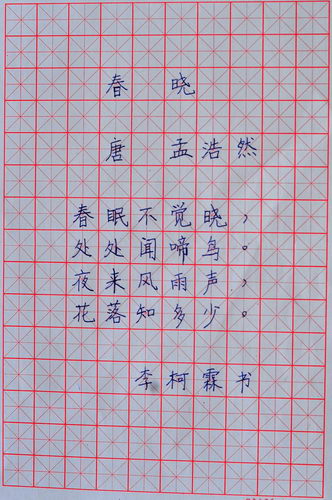 春 晓
唐 孟浩然
春眠不觉晓，
处处闻啼鸟。
夜来风雨声，
花落知多少。
李柯霖书